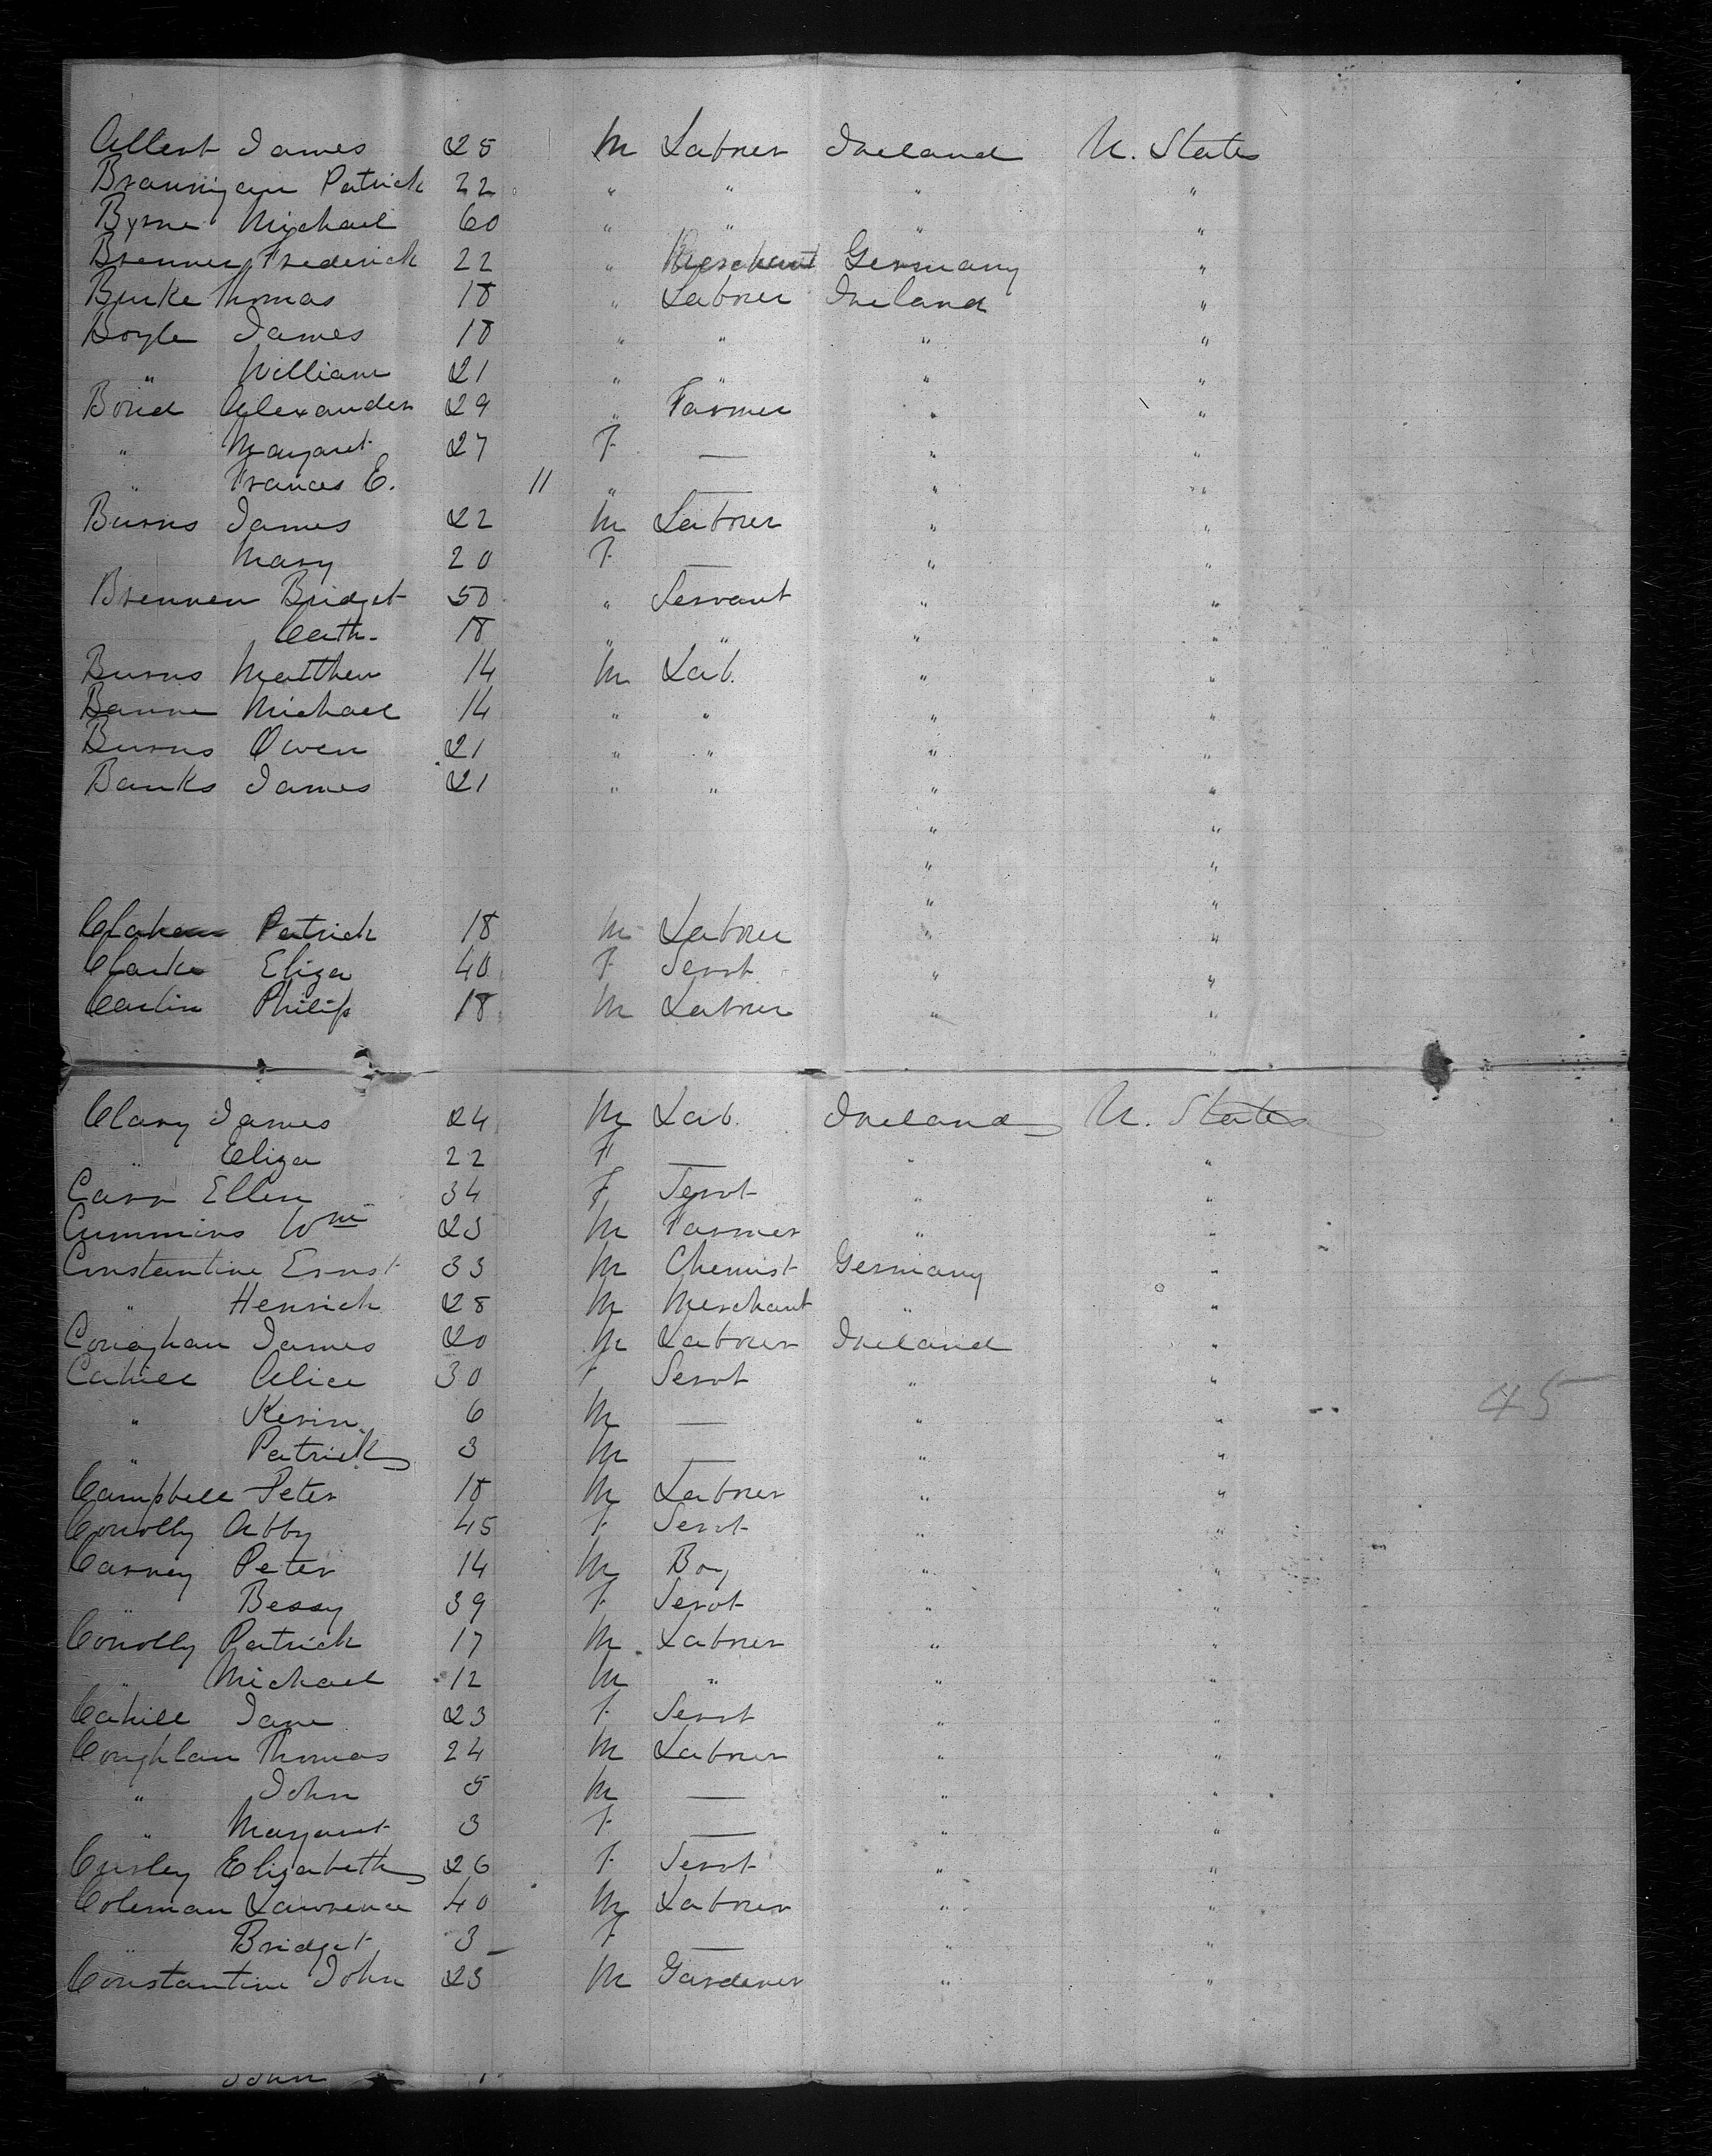 Allert James 25 M Labrer Ireland U. States
Brannigan Patrick 22 " " " "
Byrne Michael 60 " " " "
Brenner Frederick 22 " Merchant Germany "
Burke Thomas 18 " Labrer Ireland "
Boyle James 18 " " " "
" William 21 " " " "
Bond Alexander 29 " Farmer " "
" Margaret 27 F — " "
" Frances E. 11 " — " "
Burns James 22 M Labrer " "
Mary 20 F — " "
Brennen Bridget 50 " Servant " "
Cath. 18 " " " "
Burns Matthew 14 M Lab. " "
Michael 14 " " " "
Burns Owen 21 " " " "
Banks James 21 " " " "
" "
" "
" "
Patrick 18 M Labrer " "
Clarke Eliza 40 F Servt " "
Carlin Philip 18 M Labrer " "
Clary James 24 M Lab. Ireland U. States
" Eliza 22 F — " "
Carr Ellen 34 F Servt " "
Cummins Wm 23 M Farmer " "
Constantine Ernst 33 M Chemist Germany "
" Henrich 28 M Merchant " "
Conaghan James 20 M Labrer Ireland "
Cahill Alice 30 F Servt " "
" Kerin 6 M — " " 45
" Patrick 3 M — " "
Campbell Peter 18 M Labrer " "
Conolly Abby 45 F Servt " "
Carney Peter 14 M Boy " "
" Bessy 39 F Servt " "
Conolly Patrick 17 M Labrer " "
" Michael 12 M " " "
Cahill Jane 23 F Servt " "
Coughlan Thomas 24 M Labrer " "
" John 5 M — " "
" Margaret 3 F — " "
Curley Elizabeth 26 F Servt " "
Coleman Lawrence 40 M Labrer " "
" Bridget 3 F — " "
Constantine John 23 M Gardener " "
" John